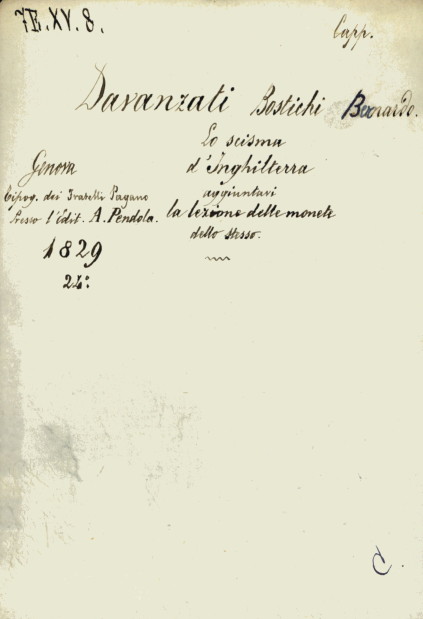 7E.XV.8.
Capp.
Davanzati Bostichi Bernardo.
Lo scisma
d'Inghilterra
aggiuntavi
la lezione delle monete
dello stesso.
Genova
Tipog. dei Fratelli Pagano
Presso l'édit. A. Pendola.
1829
24:°
C.